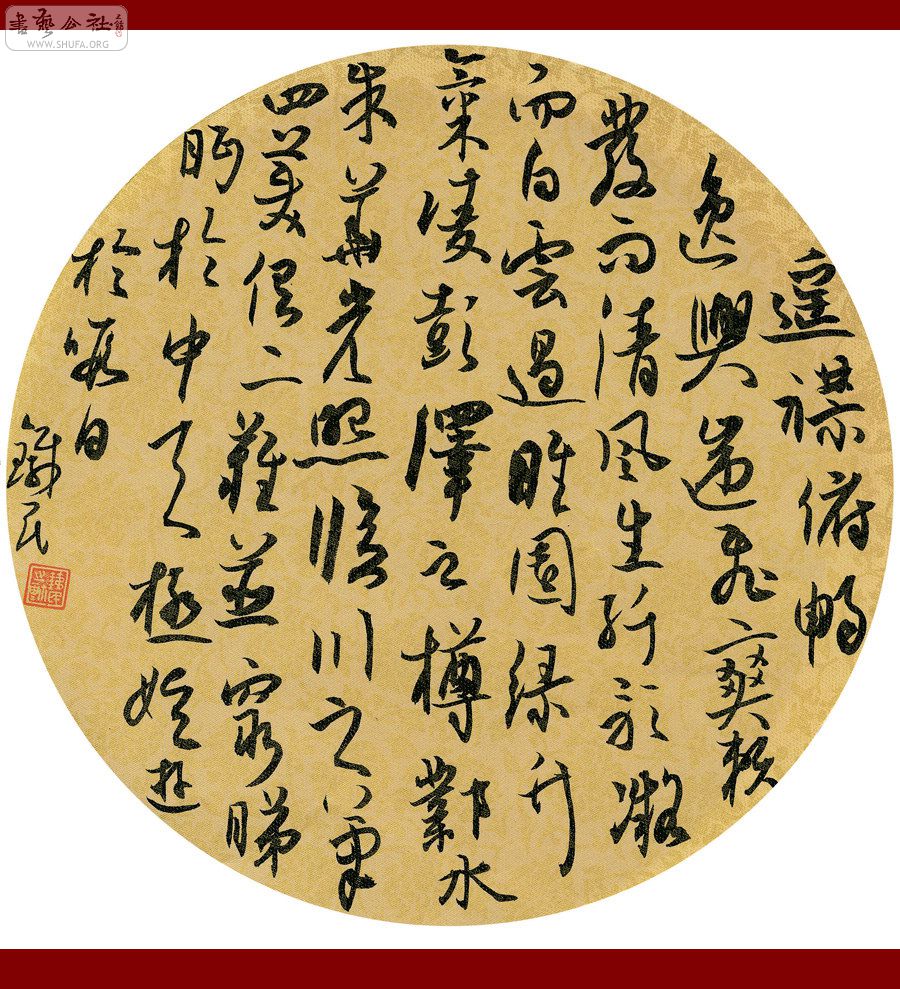 書藝公社
WWW.SHUFA.ORG
遥襟俯暢
逸興遄飛爽籟
發而清風生纖歌凝
而白雲遏睢園緑竹
氣凌彭澤之樽鄴水
朱華光照臨川之筆
四美俱二難並窮睇
眄於中天極娱遊
於暇日
鐵民